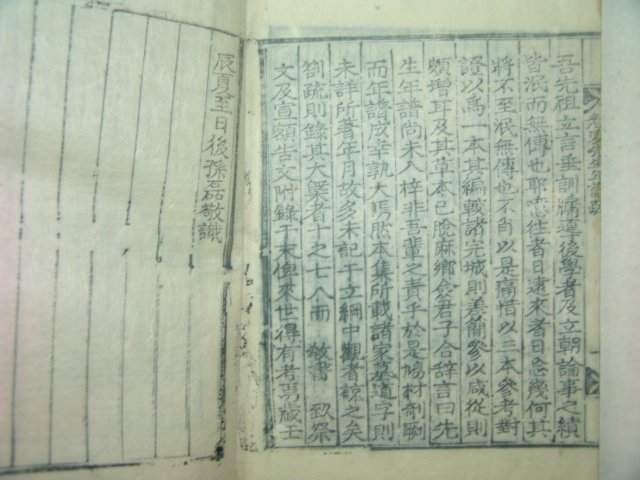 吾先祖立言垂訓牖導後學者及立朝論事之績
皆泯而無傳也耶念往者日遠來者日急幾何其
將不至泯無傳也不肖以是痛惜以三本參考對
證以爲一本其編較諸完城則差簡參以咸從則
頗增耳及其草本已脫麻鄕僉君子合辭言曰先
生年譜尚未入梓非吾輩之責乎於是鳩材剞劂
而年譜成幸孰大焉然本集所載諸家墓道字則
未詳所著年月故多未記于立綱中觀者諒之矣
劄疏則錄其大槩者十之七八而 敎書 致祭
文及宣額告文附錄于末俾來世得有考焉歲壬
辰夏至日後孫磊敬識